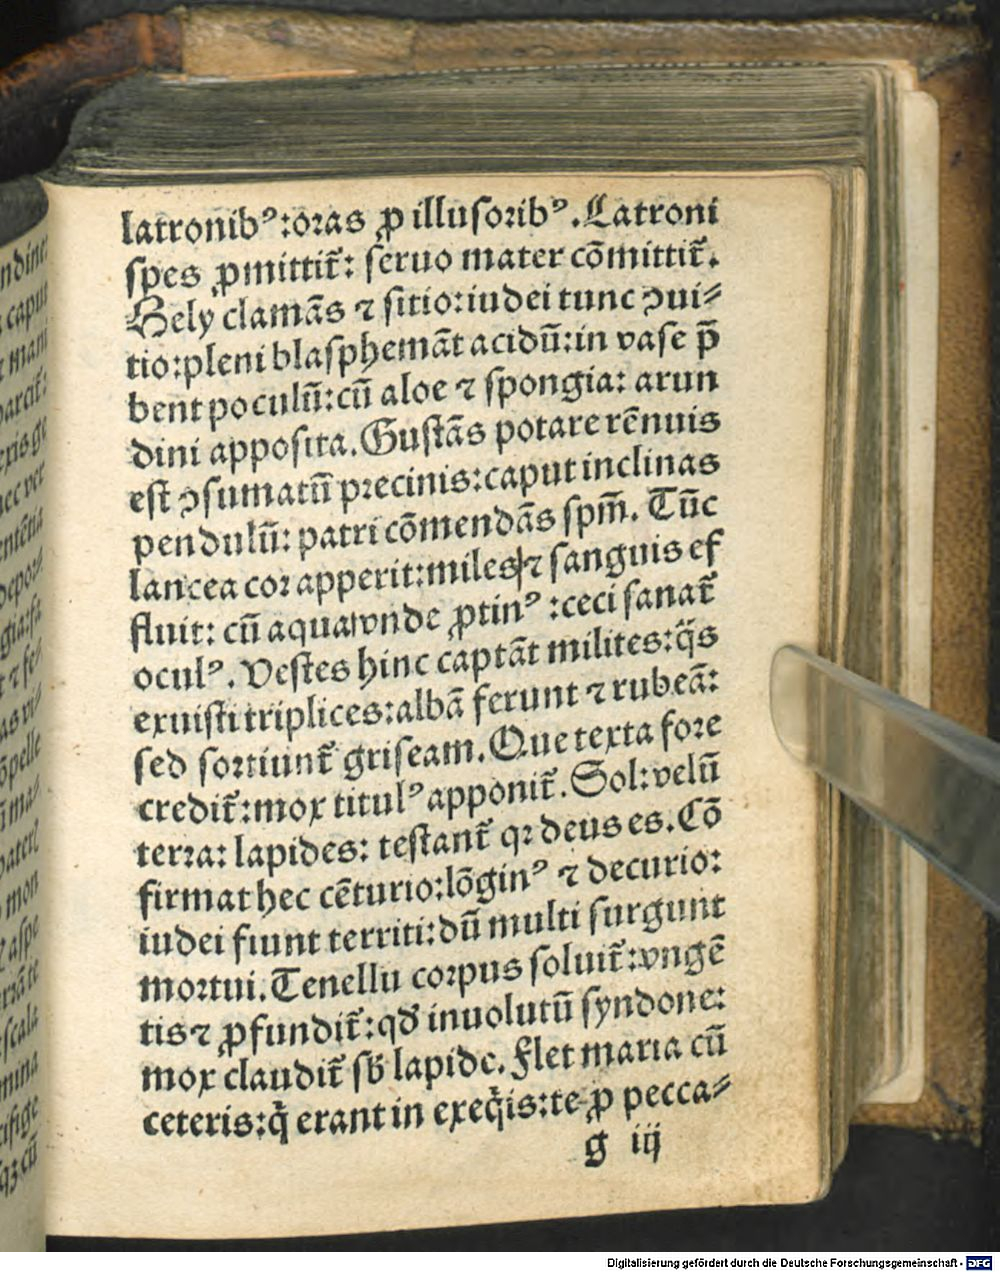 latronibꝰ:oꝛas ꝓ illuſoꝛibꝰ.Latroni
ſpes ꝓmittit̃: ſeruo mater cōmittit̃.
Hely clamās ⁊ ſitio:iudei tunc ꝯui⸗
tio:pleni blaſphemāt acidū:in vaſe p̄
bent poculū:cū aloe ⁊ ſpongia: arun
dini appoſita.Guſtās potare rēnuis
eſt ꝯſumatū pꝛecinis:caput inclinas
pendulū: patri cōmendās ſpm̄. Tūc
lancea coꝛ apperit:miles ⁊ ſanguis ef
fluit: cū aqua vnde ꝓtinꝰ :ceci ſanat̃
oculꝰ. Veſtes hinc captāt milites:q̈s
exuiſti triplices:albā ferunt ⁊ rubeā:
ſed ſoꝛtiunt̃ griſeam.Que texta foꝛe
credit̃:mox titulꝰ apponit̃.Sol:velū
terꝛa: lapides: teſtant̃ qꝛ deus es.Cō
firmat hec cēturio:lōginꝰ ⁊ decurio:
iudei fiunt territi:dū multi ſurgunt
moꝛtui.Tenellu coꝛpus ſoluit̃:vngē
tis ⁊ ꝓfundit̃:qð inuolutū ſyndone:
mox claudit̃ ſƀ lapide. Flet maria cū
ceteris:q̄ erant in exeq̇is:te ꝓ pecca⸗
g iij
Digitalisierung gefördert durch die Deutsche Forschungsgemeinschaft - DFG